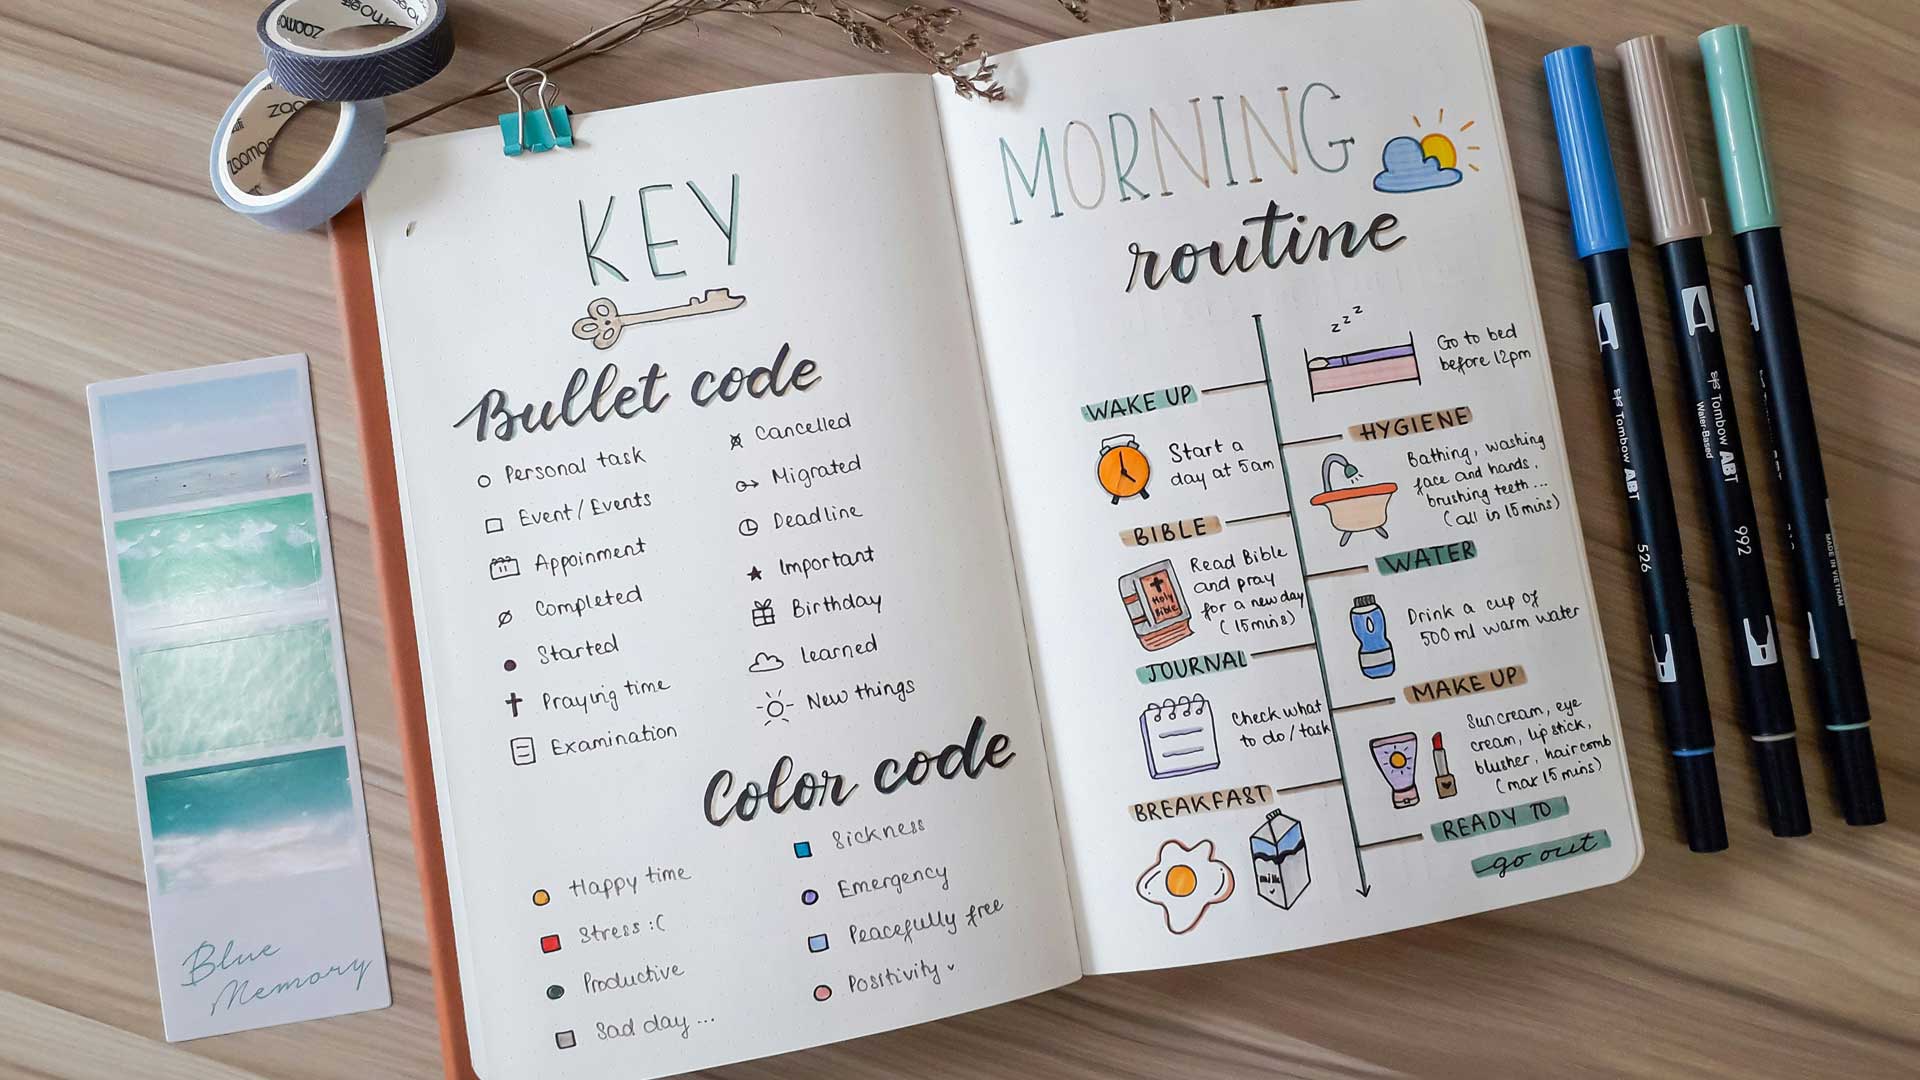 zoomo
zoomo
KEY
Bullet code
Personal task
Event / Events
Appoinment
Completed
Started
Praying time
Examination
Cancelled
Migrated
Deadline
Important
Birthday
learned
New things
Color code
Happy time
Stress :(
Productive
Sad day ...
Sickness
Emergency
Peacefully free
Positivity
MORNING
routine
z z z
Go to bed
before 12pm
WAKE UP
Start a
day at 5am
HYGIENE
Bathing, washing
face and hands,
brushing teeth...
(all in 15 mins)
BIBLE
Holy
Bible
Read Bible
and pray
for a new day
(15mins)
WATER
Drink a cup of
500 ml warm water
JOURNAL
Check what
to do / task
MAKE UP
Sun cream, eye
cream, lip stick,
blusher, hair comb
(max 15 mins)
BREAKFAST
milk
READY TO
go out
Blue
Memory
Tombow ABT
526
Tombow ABT
Water-Based
992
MADE IN VIETNAM